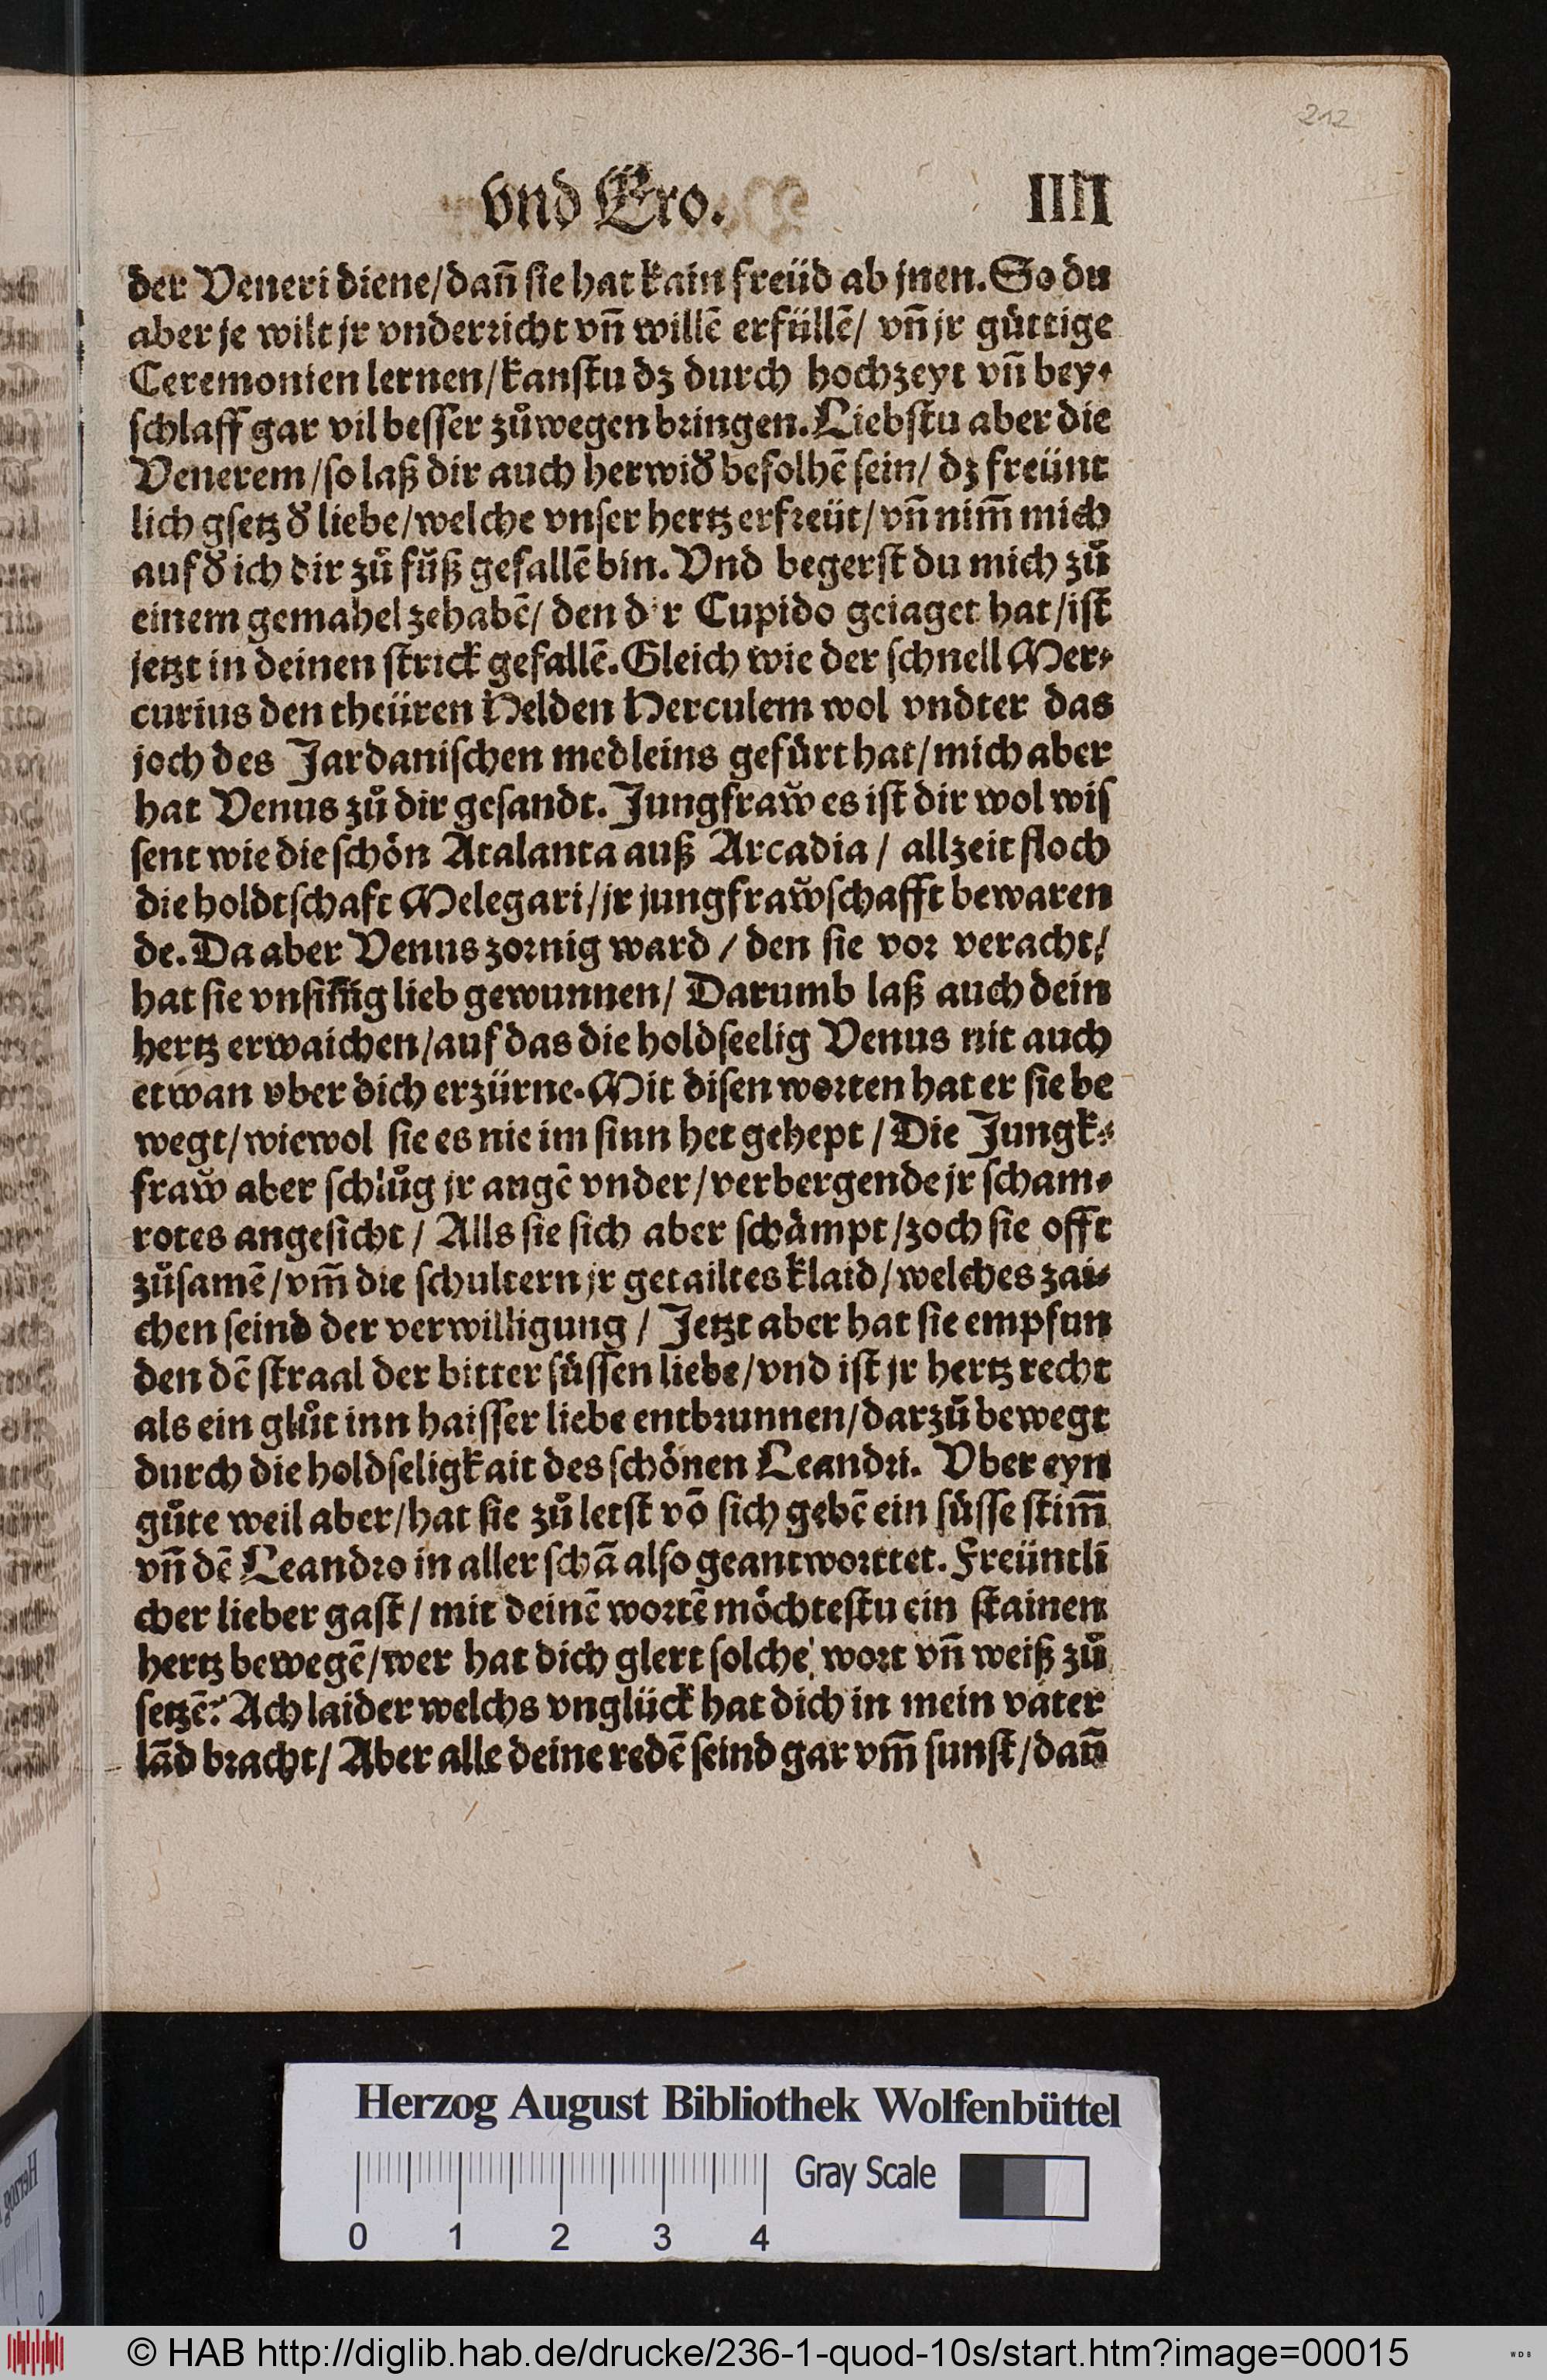 212
vnd Ero. IIII
der Veneri diene/dañ ſie hat kain freüd ab jnen. So du
aber je wilt jr vnderꝛicht vñ willē erfüllē/ vñ jr gůttige
Ceremonien lernen/kanſtu dz durch hochzeyt vñ bey⸗
ſchlaff gar vil beſſer zůwegen bꝛingen. Liebſtu aber die
Venerem/ſo laß dir auch herwið befolhē ſein/ dz freünt
lich gſetz ð liebe/welche vnſer hertz erfꝛeüt/vñ nim̃ mich
auf ð ich dir zů fůß gefallē bin. Vnd begerſt du mich zů
einem gemahel zehabē/ den d'r Cupido geiaget hat/iſt
jetzt in deinen ſtrick gefallē. Gleich wie der ſchnell Mer⸗
curius den theüren Helden Herculem wol vndter das
joch des Jardaniſchen medleins gefürt hat/mich aber
hat Venus zů dir geſandt. Jungfraw̆ es iſt dir wol wiſ
ſent wie die ſchön Atalanta auß Arcadia/ allzeit floch
die holdtſchaft Melegari/jr jungfraw̆ſchafft bewaren
de. Da aber Venus zoꝛnig ward/den ſie voꝛ veracht/
hat ſie vnſiñig lieb gewunnen/ Darumb laß auch dein
hertz erwaichen/auf das die holdſeelig Venus nit auch
etwan vber dich erzürne. Mit diſen woꝛten hat er ſie be
wegt/wiewol ſie es nie im ſinn het gehept/Die Jungk⸗
fraw̆ aber ſchlůg jr augē vnder/verbergende jr ſcham⸗
rotes angeſicht/ Alls ſie ſich aber ſchämpt/zoch ſie offt
zůſamē/vm̃ die ſchultern jr getailtes klaid/welches zai⸗
chen ſeind der verwilligung/ Jetzt aber hat ſie empfun
den dē ſtraal der bitter ſüſſen liebe/vnd iſt jr hertz recht
als ein glůt inn haiſſer liebe entbꝛunnen/darzů bewegt
durch die holdſeligkait des ſchönen Leandꝛi. Vber eyn
gůte weil aber/hat ſie zů letſt võ ſich gebē ein ſüſſe ſtim̃
vñ dē Leandꝛo in aller ſchã alſo geantwoꝛttet. Freüntli
cher lieber gaſt/ mit deinē woꝛtē möchteſtu ein ſtainen
hertz bewegē/wer hat dich glert ſolche woꝛt vñ weiß zů
ſetzē? Ach laider welchs vnglück hat dich in mein vater
lãd bꝛacht/ Aber alle deine redē ſeind gar vm̃ ſunſt/dañ
Herzog August Bibliothek Wolfenbüttel
Gray Scale
0 1 2 3 4
© HAB http://diglib.hab.de/drucke/236-1-quod-10s/start.htm?image=00015